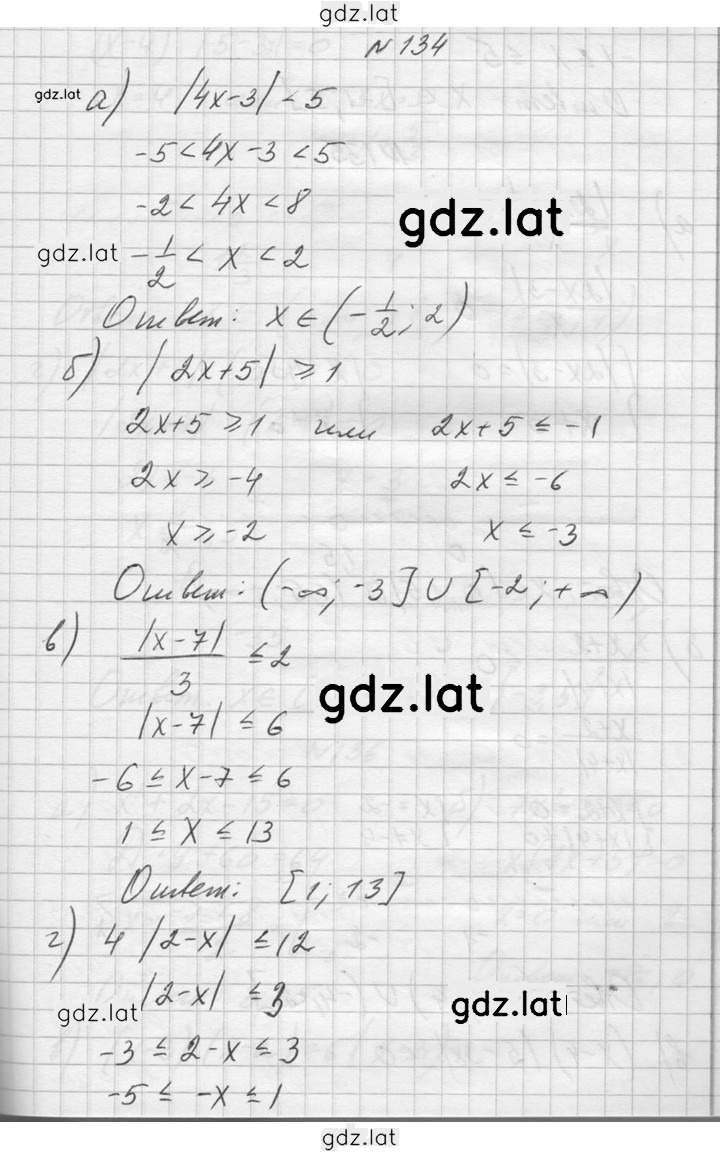 gdz.lat
N 134
gdz.lat а) |4x-3| < 5
-5<4x-3<5
-2<4x<8
gdz.lat
gdz.lat -1/2 < x < 2
Ответ: x∈(-1/2; 2)
б) |2x+5| ⩾ 1
2x+5 ⩾ 1 или 2x+5 ≤ -1
2x ⩾ -4 2x ≤ -6
x ⩾ -2 x ≤ -3
Ответ: (-∞; -3] ∪ [-2; +∞)
в) |x-7|/3 ≤ 2
gdz.lat
|x-7| ≤ 6
-6 ≤ x-7 ≤ 6
1 ≤ x ≤ 13
Ответ: [1; 13]
г) 4 |2-x| ≤ 12
|2-x| ≤ 3
gdz.lat gdz.lat
-3 ≤ 2-x ≤ 3
-5 ≤ -x ≤ 1
gdz.lat